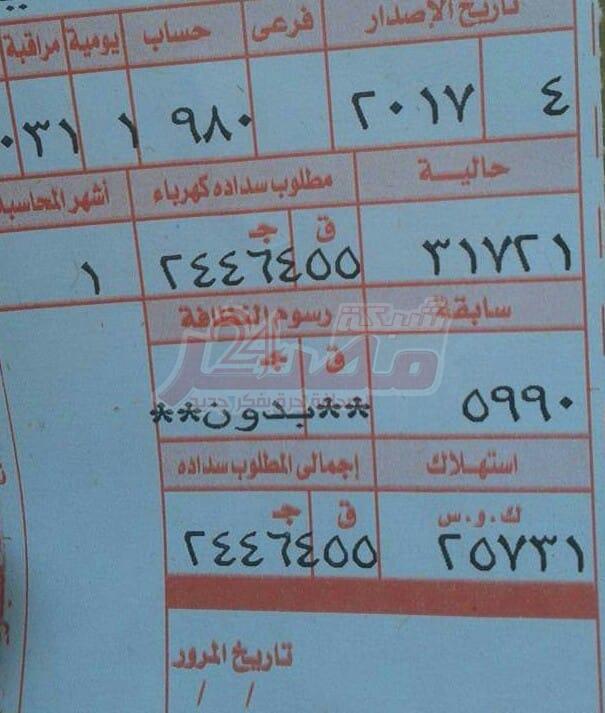 تاريخ الإصدار فرعى حساب يومية مراقبة
٤ ٢٠١٧ ٩٨٠ ١ ٠٣١
حالية مطلوب سداده كهرباء أشهر المحاسبة
ق جـ
٣١٧٢١ ٢٤٤٦٤٥٥ ١
سابقة رسوم النظافة
ق جـ
٥٩٩٠ **بدون**
استهلاك إجمالى المطلوب سداده
ك . و . س ق جـ
٢٥٧٣١ ٢٤٤٦٤٥٥
تاريخ المرور
/ /
شبكة
مصر 24
صحافة حرة بفكر جديد